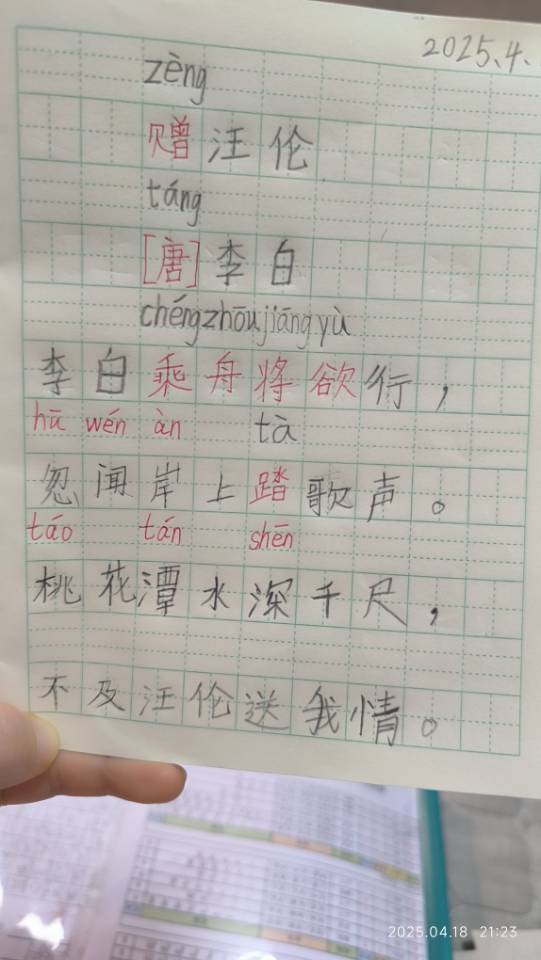 2025.4.
zèng
赠汪伦
táng
[唐]李白
chéngzhōujiāngyù
李白乘舟将欲行，
hū wén àn tà
忽闻岸上踏歌声。
táo tán shēn
桃花潭水深千尺，
不及汪伦送我情。
2025.04.18 21:23